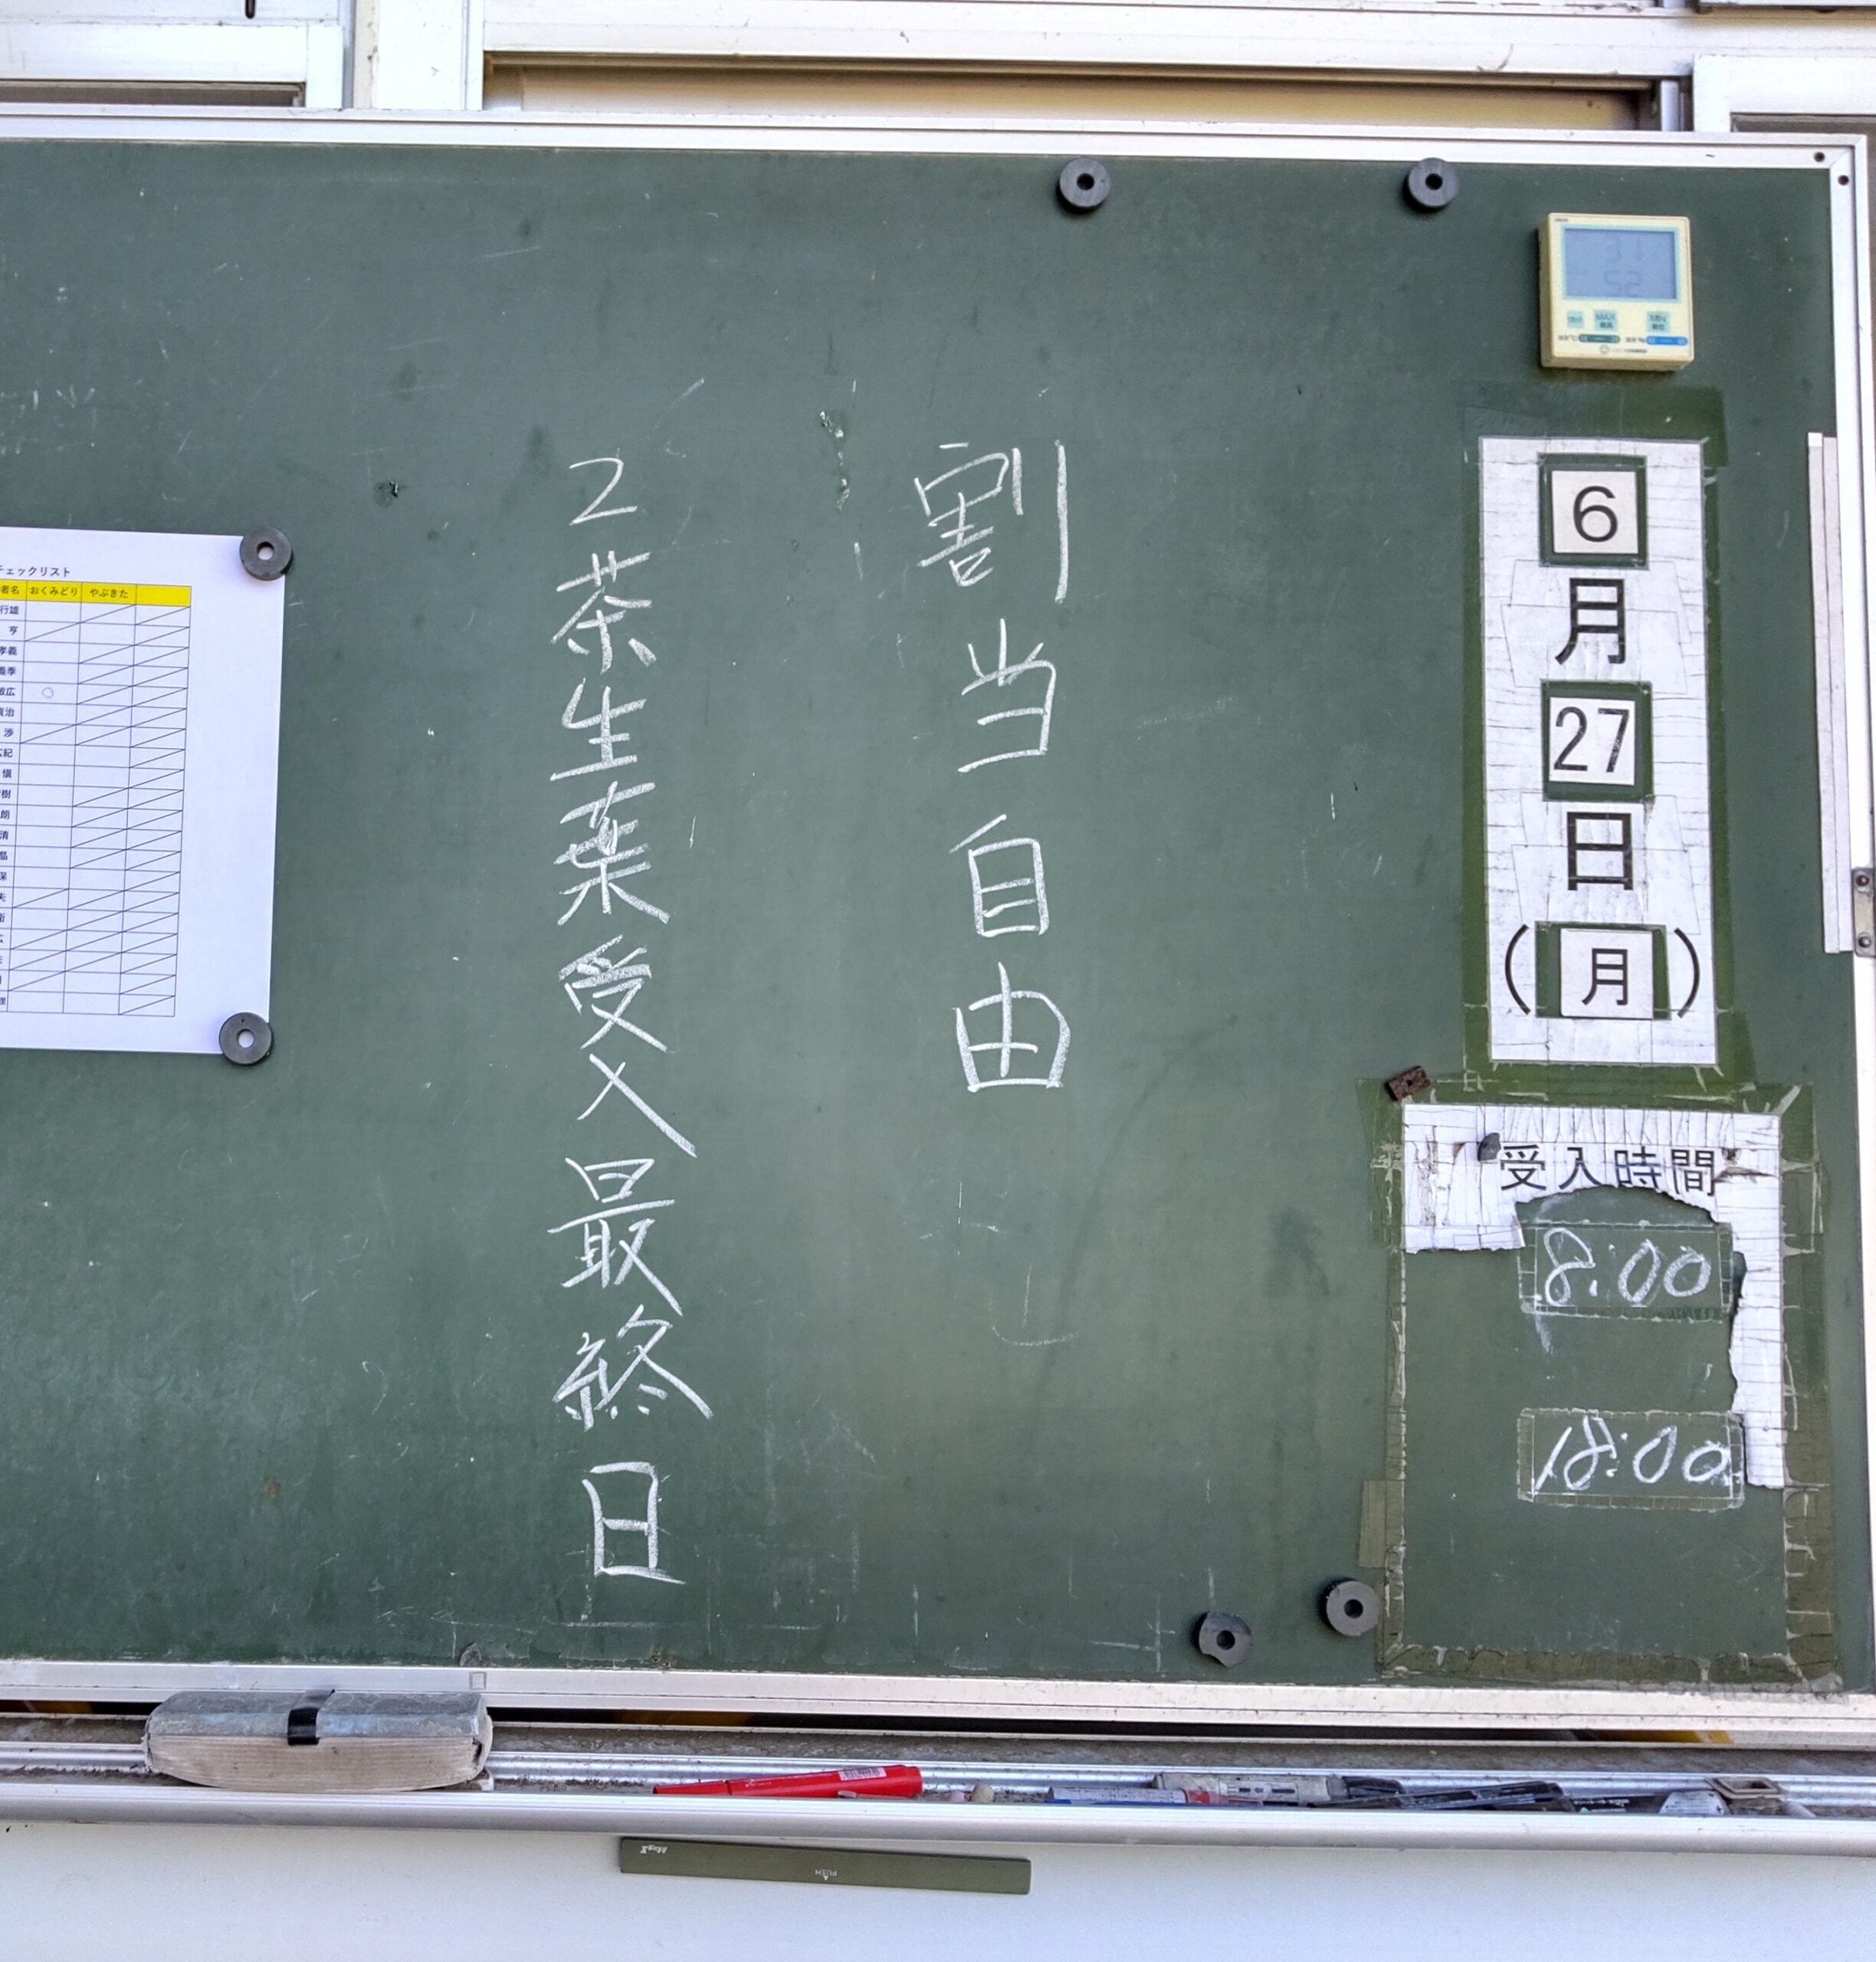 6月27日(月)
受入時間
8:00
18:00
割当自由
2茶生葉受入最終日
チェックリスト
者名 おくみどり やぶきた
行雄
亨
孝義
義季
敏広
貞治
渉
広紀
慎
樹
朗
清
晶
保
夫
MAX
PUSH
MagX